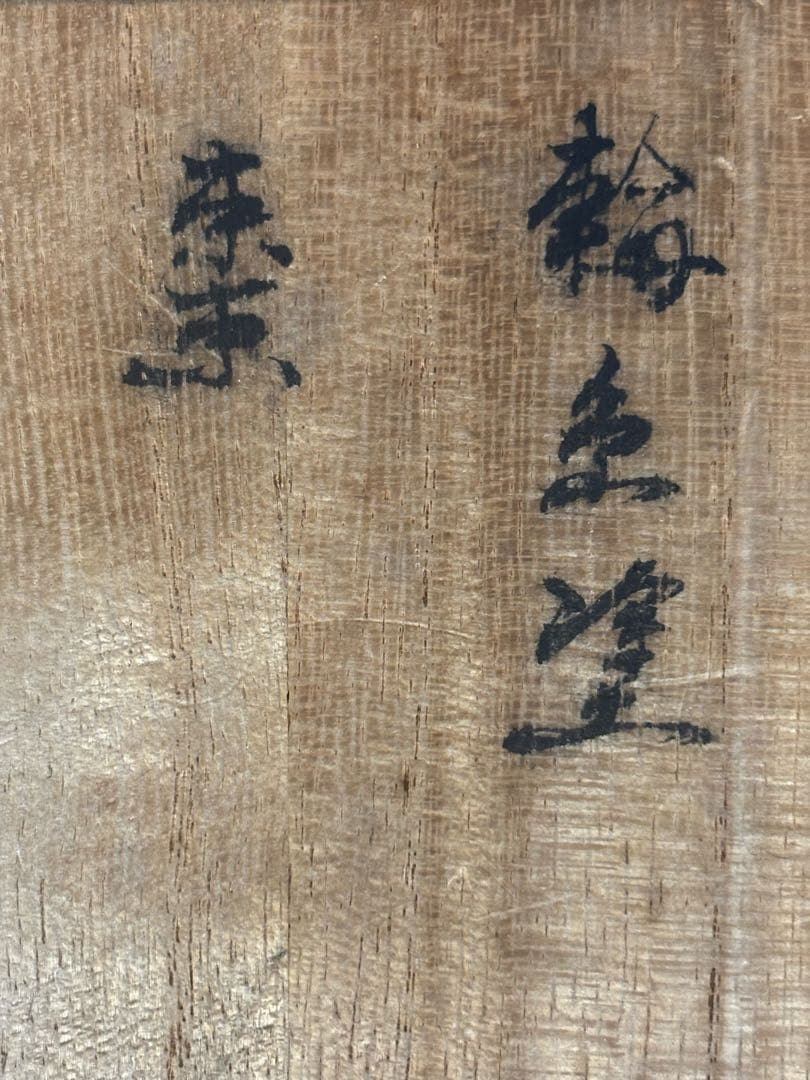 輪島塗
棗